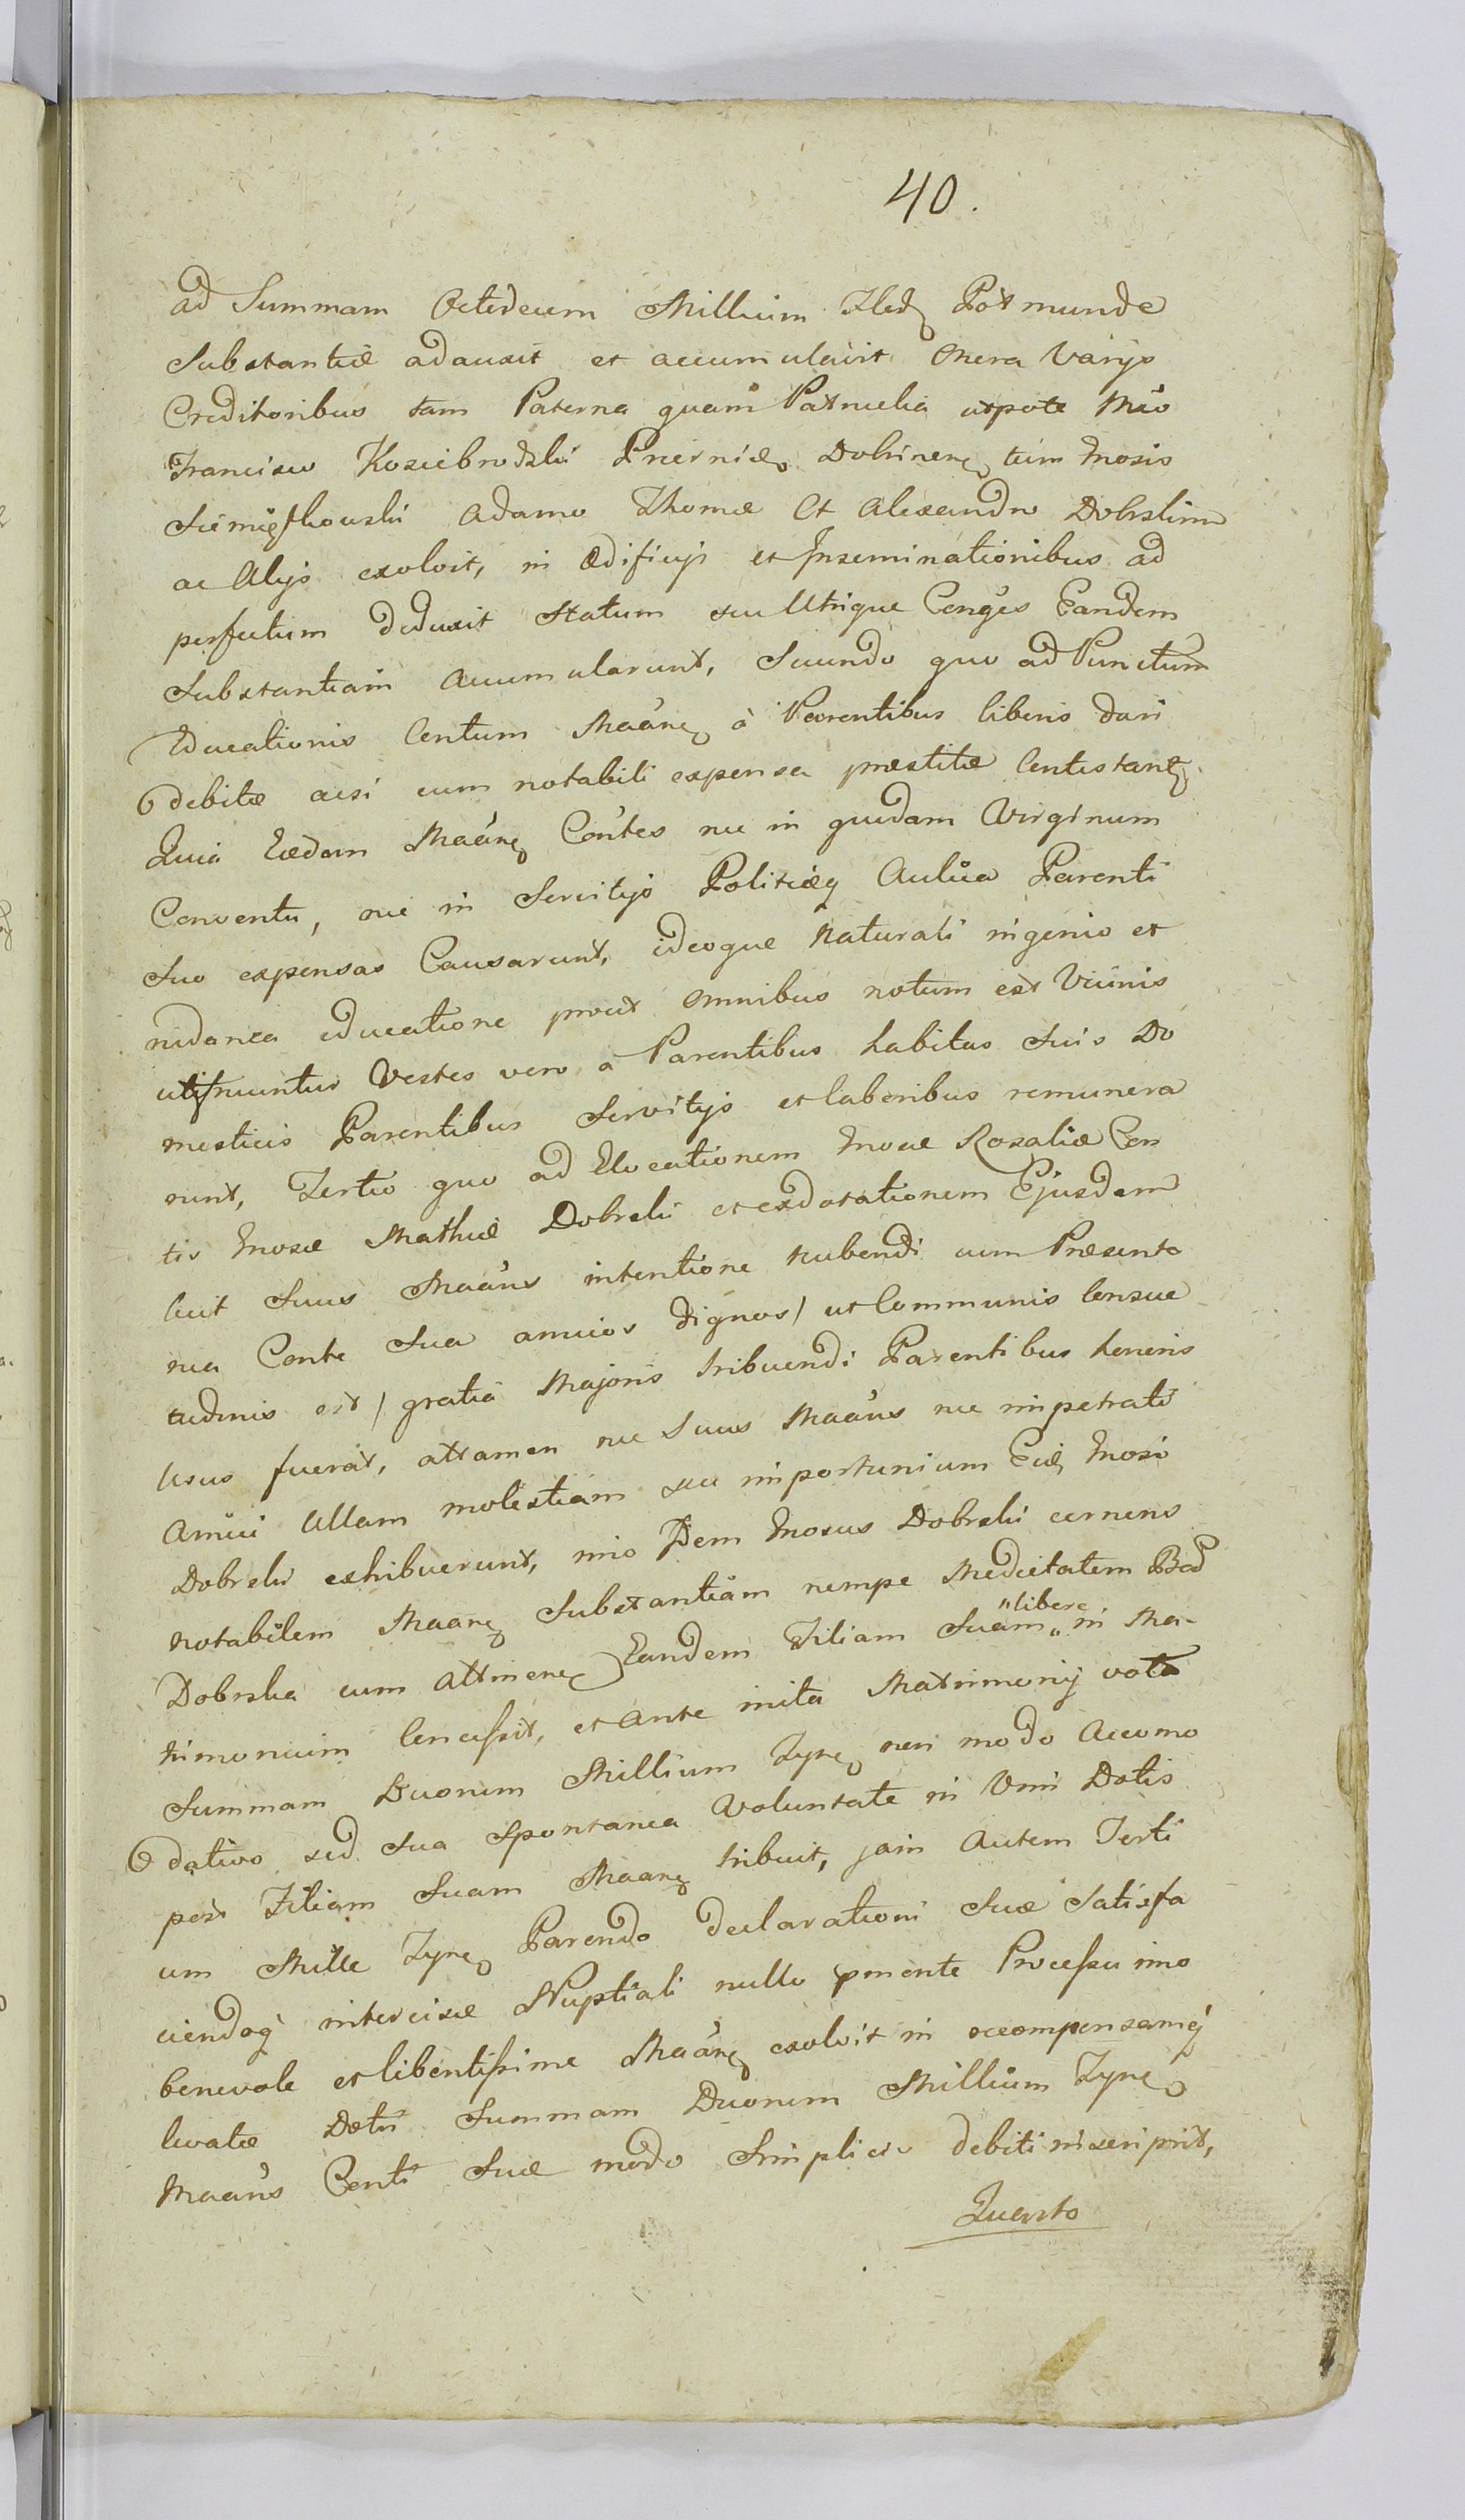 40.
ad Summam Octodecim Millium Flor Pol munde
Substantiæ adauxit et accumulavit Onera Varijs
Creditoribus tam Paterna quam Patruelia utpote Mco
Francisco Kosciebrodzki Dobrinen tum Gnosis
Adamo Thomæ Et Alexandro Dobrskim
ac Alijs exolvit, in Ædificijs et Inseminationibus ad
perfectum deduxit Statum seu Utrique Conges Eandem
Substantiam Accumularunt, Secundo quo ad Punctum
Educationis Centum Maanz à Parentibus liberis dari
debitæ acsi cum notabili expensa præstitæ
Quia Eædem Maanz Contes nec in quodam Virginum
Conventu, nec in Servitijs Aulica Parenti
Suo expensas Causarunt, ideoque Naturali ingenio et
educatione prout Omnibus notum est Vicinis
utifruuntur Vestes vero a Parentibus habitas Suis Do
mesticis Parentibus Servitijs et laboribus remunera
runt, Tertio quo ad Elocationem Gnosæ Rosaliæ Con
tis Gnosæ Mathiæ Dobrski et exdotationem Ejusdem
licit Suus Maans intentione Nubendi cum Præsenta
nea Conte Sua amicos dignos / ut Communis Consue
tudinis est / gratiâ Majoris tribuendi Parentibus honoris
Usus fuerat, attamen nec Suus Maans nec impetrati
Amici Ullam molestiam seu importunium Gnoso
Dobrski exhibuerunt, imo Idem Gnosus Dobrski cernens
Notabilem Maanz Substantiam nempe Medietatem Bod
Dobrska cum Attinenz Eandem Filiam Suam „ in Ma-
"libere
trimonium Concessit, et Ante inita Matrimonij vota
Summam Duorum Millium Tynf non modo Accomo
dativo sed Sua Spontanea Voluntate in Vim Dotis
post Filiam Suam Maanz tribuit, jam Autem Terti
um Mille Tynf Parendo declarationi Suæ Satisfa
ciendoq intercisæ Nuptiali nullo pmente Processu imo
benevole et libentissime Maanz exolvit in
levatæ Dotis Summam Duorum Millium Tynf
Maans Conti Suæ modo Simplicis debiti inscripsit,
Quarto